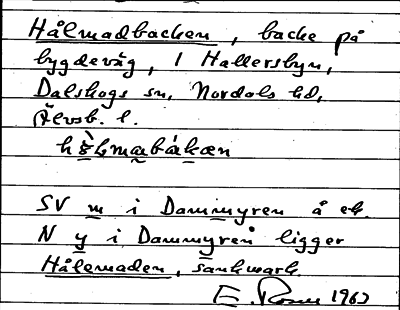 Hålmadbacken, backe på
bygdeväg, i Hallersbyn,
Dalskogs sn, Nordals hd,
Älvsb. l.

SV m i Dammyren å ek.
N y i Dammyren ligger
Hålemaden, sankmark.
E. 1960